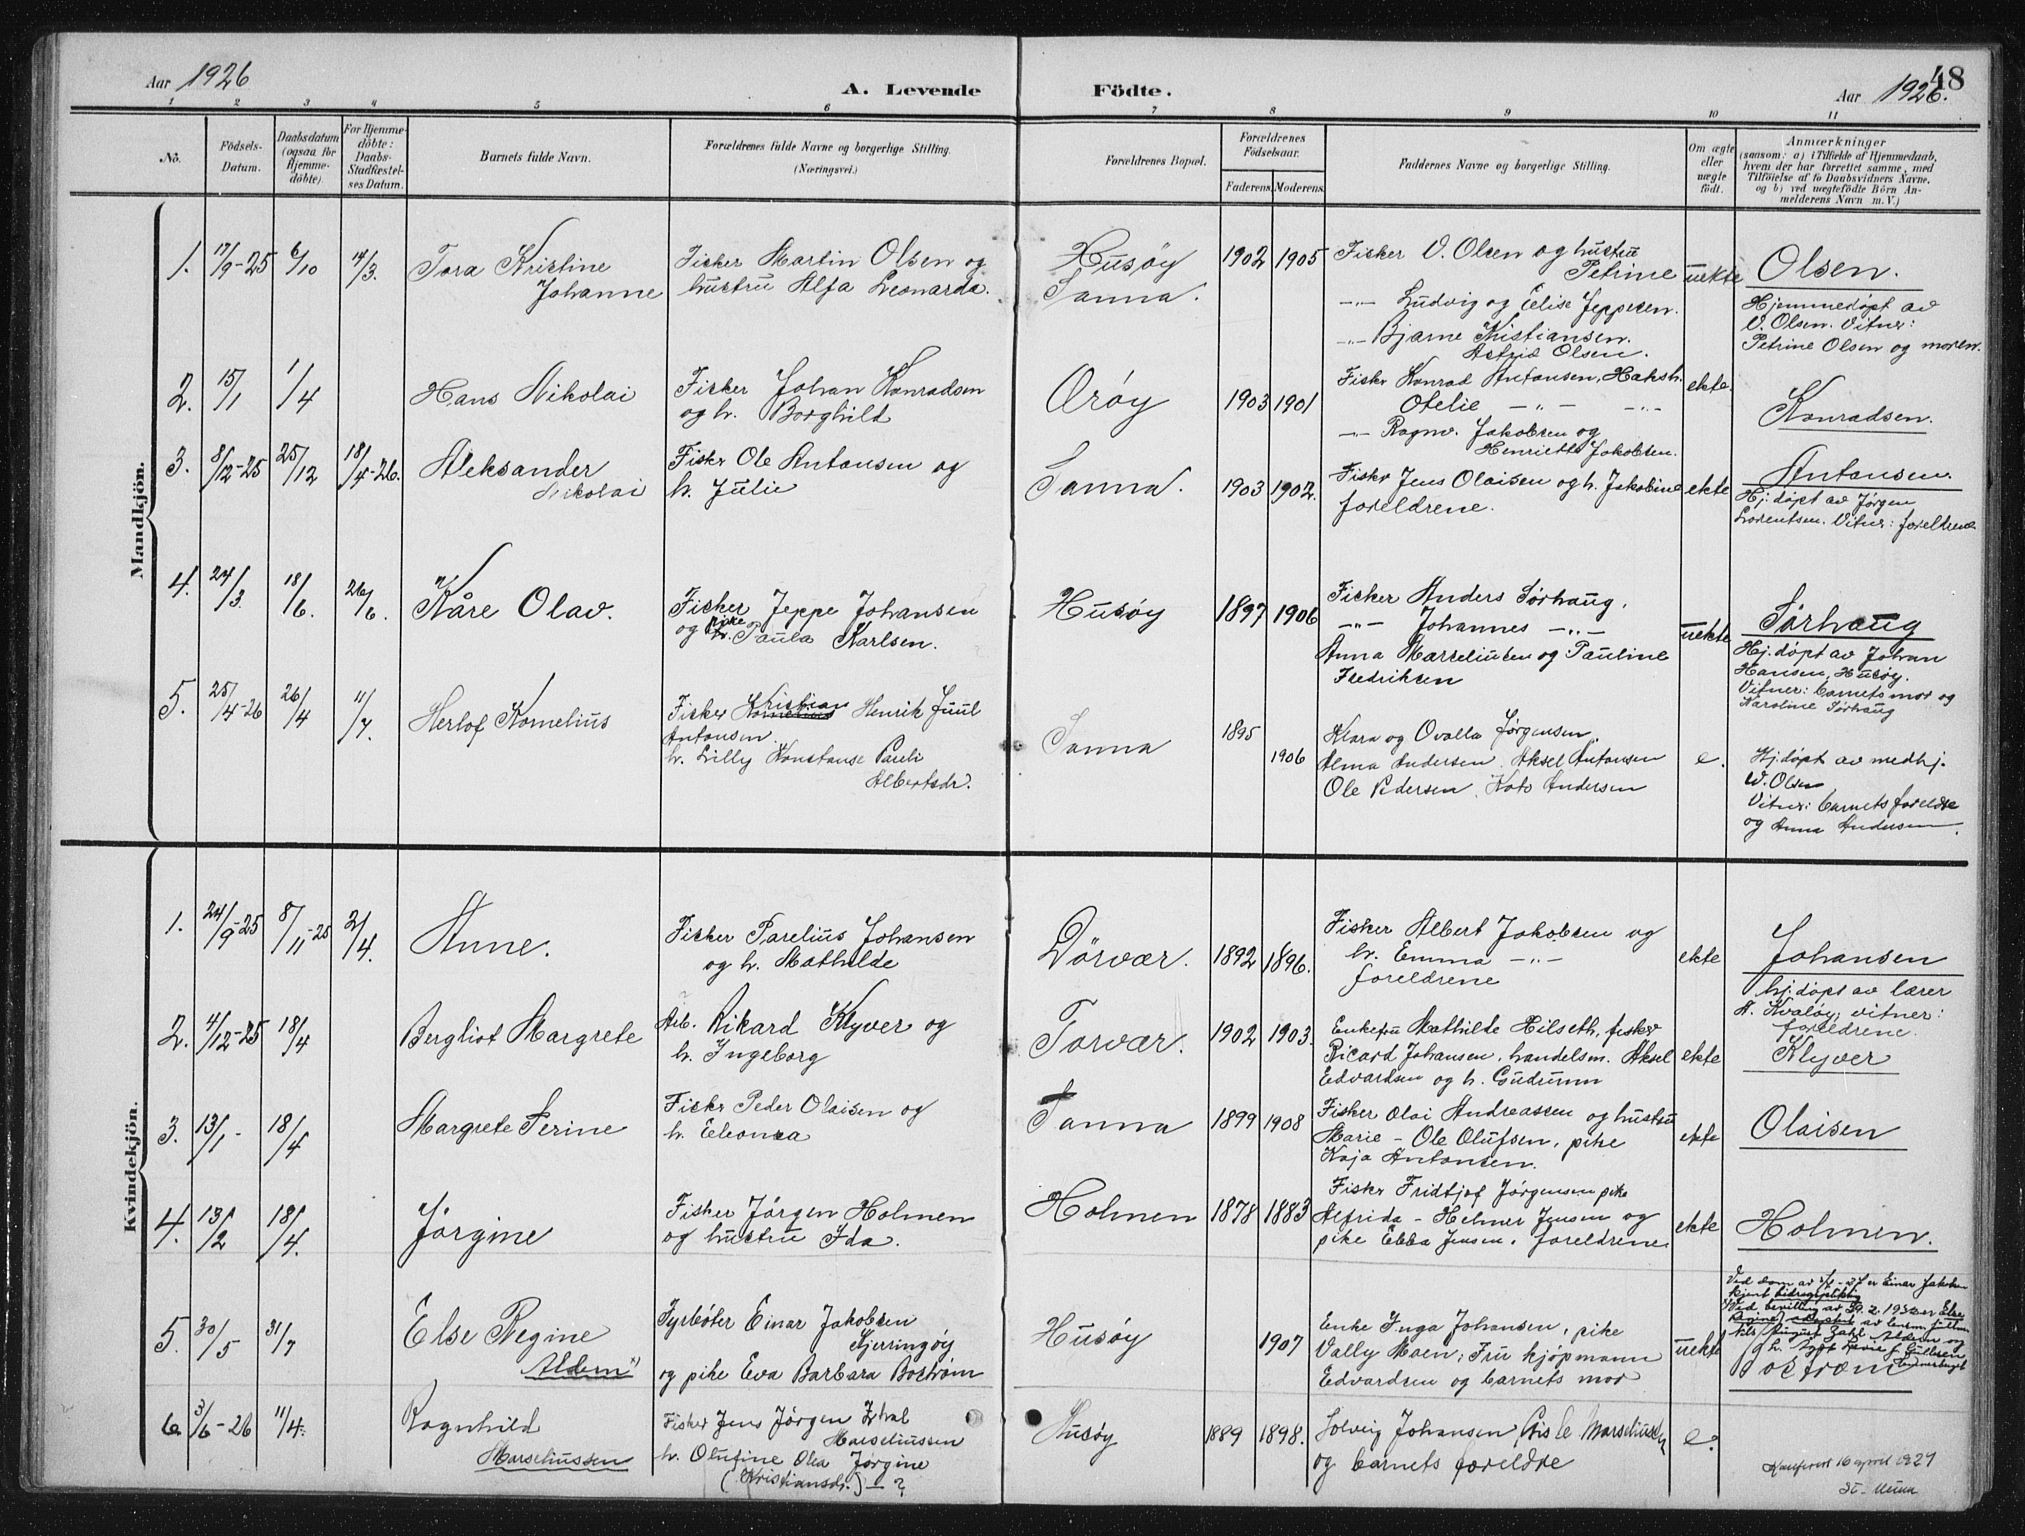 Aar 1926
A. Levende
Födte.
Aar 1926.
48
1 2 3 4 5 6 7 8 9 10 11
No.
Födsels-
Datum.
Daabsdatum
(ogsaa for
Hjemme-
döbte)
For Hjemme-
döbte:
Daabs-
Stadfæstel-
ses Datum.
Barnets fulde Navn.
Forældrenes fulde Navne og borgerlige Stilling.
(Næringsvei.)
Forældrenes Bopæl.
Forældrenes
Födselsaar.
Faderens. Moderens.
Faddernes Navne og borgerlige Stilling.
Om ægte
eller
uægte
födt.
Anmærkninger
(saasom: a) i Tilfælde af Hjemmedaab,
hvem der har forrettet samme, med
Tilföielse af to Daabsvidners Navne.
og b) ved uægtefödte Börn An-
melderens Navn m. V.)
Mandkjön.
1. 17/9-25 6/10 14/3. Tora Kristine
Johanne
Fisker Martin Olsen og
hustru Alfa Leonarda.
Husøy
Sanna.
1902 1905
Fisker V. Olsen og hustru
Petrine
-"- Ludvig og Elise Jeppesen.
-"- Bjarne Kristiansen.
Astrid Olsen.
uekte
Olsen.
Hjemmedøpt av
V. Olsen. Vitner:
Petrine Olsen og moren.
2. 15/1 1/4 Hans Nikolai
Fisker Johan Konradsen
og h. Borghild
Ørøy
1903 1901
Fisker Konrad Antonsen,
Otelie -"- -"-
-"- Ragnv. Jakobsen og
Henriette Jakobsen.
ekte.
Konradsen.
3. 8/12-25 25/12 18/4-26. Aleksander
Nikolai
Fisker Ole Antonsen og
h. Julie
Sanna.
1903 1902.
Fisker Jens Olaisen og h. Jakobine
foreldrene.
ekte
Antonsen.
Hj. døpt av Jørgen
Lorentsen. Vitner: foreldrene
4. 24/3 18/6. 26/6. Kåre Olav.
Fisker Jeppe Johansen
og pike Paula Karlsen.
Husøy
1897 1906
Fisker Anders Sørhaug,
-"- Johannes -"-
Anna Marseliusen og Pauline
Fredriksen
uekte
Sørhaug
Hj. døpt av Johan
Hansen, Husøy.
Vitner: barnets mor og
Karoline Sørhaug
5. 25/4-26 26/4 11/7. Herlof Kornelius
Fisker Kornelius Kristian Henrik Juul
Antonsen.
h. Lilly Konstanse Pareli
Albertsdr.
Sanna
1895
1906
Klara og Ovalla Jørgensen.
Alma Andersen. Aksel Antonsen
Ole Pedersen, Kato Andersen
e.
Hj. døpt av medhj.
W. Olsen
Vitner: barnets foreldre
og Anna Andersen.
Kvindekjön.
1. 24/9-25 8/11-25 2/4. Anne.
Fisker Parelius Johansen
og h. Mathilde
Dørvær.
1892 1896.
Fisker Albert Jakobsen og
h. Emma -"-
foreldrene
ekte
Johansen
hj. døpt av lærer
A. Kvaløy, vitner:
foreldrene.
2. 4/12-25 18/4 Bergliot Margrete
Arb. Rikard Klyver og
h. Ingeborg
Torvær.
1902 1903.
Enkefru Mathilde Hilseth, fisker
Ricard Johansen, handelsm. Aksel
Edvardsen og h. Gudrunn
ekte
Klyver
3. 13/1- 18/4 Margrete Serine
Fisker Peder Olaisen og
h. Eleonora
Sanna
1899 1908
Fisker Olai Andreassen og hustru
Marie - Ole Olufsen, pike
Kaja Antonsen.
ekte
Olaisen
4. 13/2 18/4. Jørgine
Fisker Jørgen Holmen
og hustru Ida.
Holmen
1878 1883
Fisker Fridtjof Jørgensen pike
Alfrida - Helmer Jensen og
pike Ebba Jensen, foreldrene
ekte
Holmen.
5. 30/5 31/7 Else Regine
Aldern
Fyrbøter Einar Jakobsen
Kjerringøy
og pike Eva Barbara Bostrøm
Husøy
1907
Enke Inga Johansen, pike
Vally Moen, Fru kjøpmann
Edvardsen og barnets mor
uekte
Ved dom av -27 er Einar Jakobsen
kjent bidragspliktig
Ved bevilling av 1932 er Else
Regine
Nils August Aldern og
Bostrøm
6. 3/6-26 11/4. Ragnhild
Marseliussen
Fisker Jens Jørgen
Marseliussen
h. Olufine Olea Jørgine
(Kristiansdr.) - ?
Husøy
1889 1898.
Solveig Johansen, Marseliussen
og barnets foreldre
e.
Konferert 16 april 1927